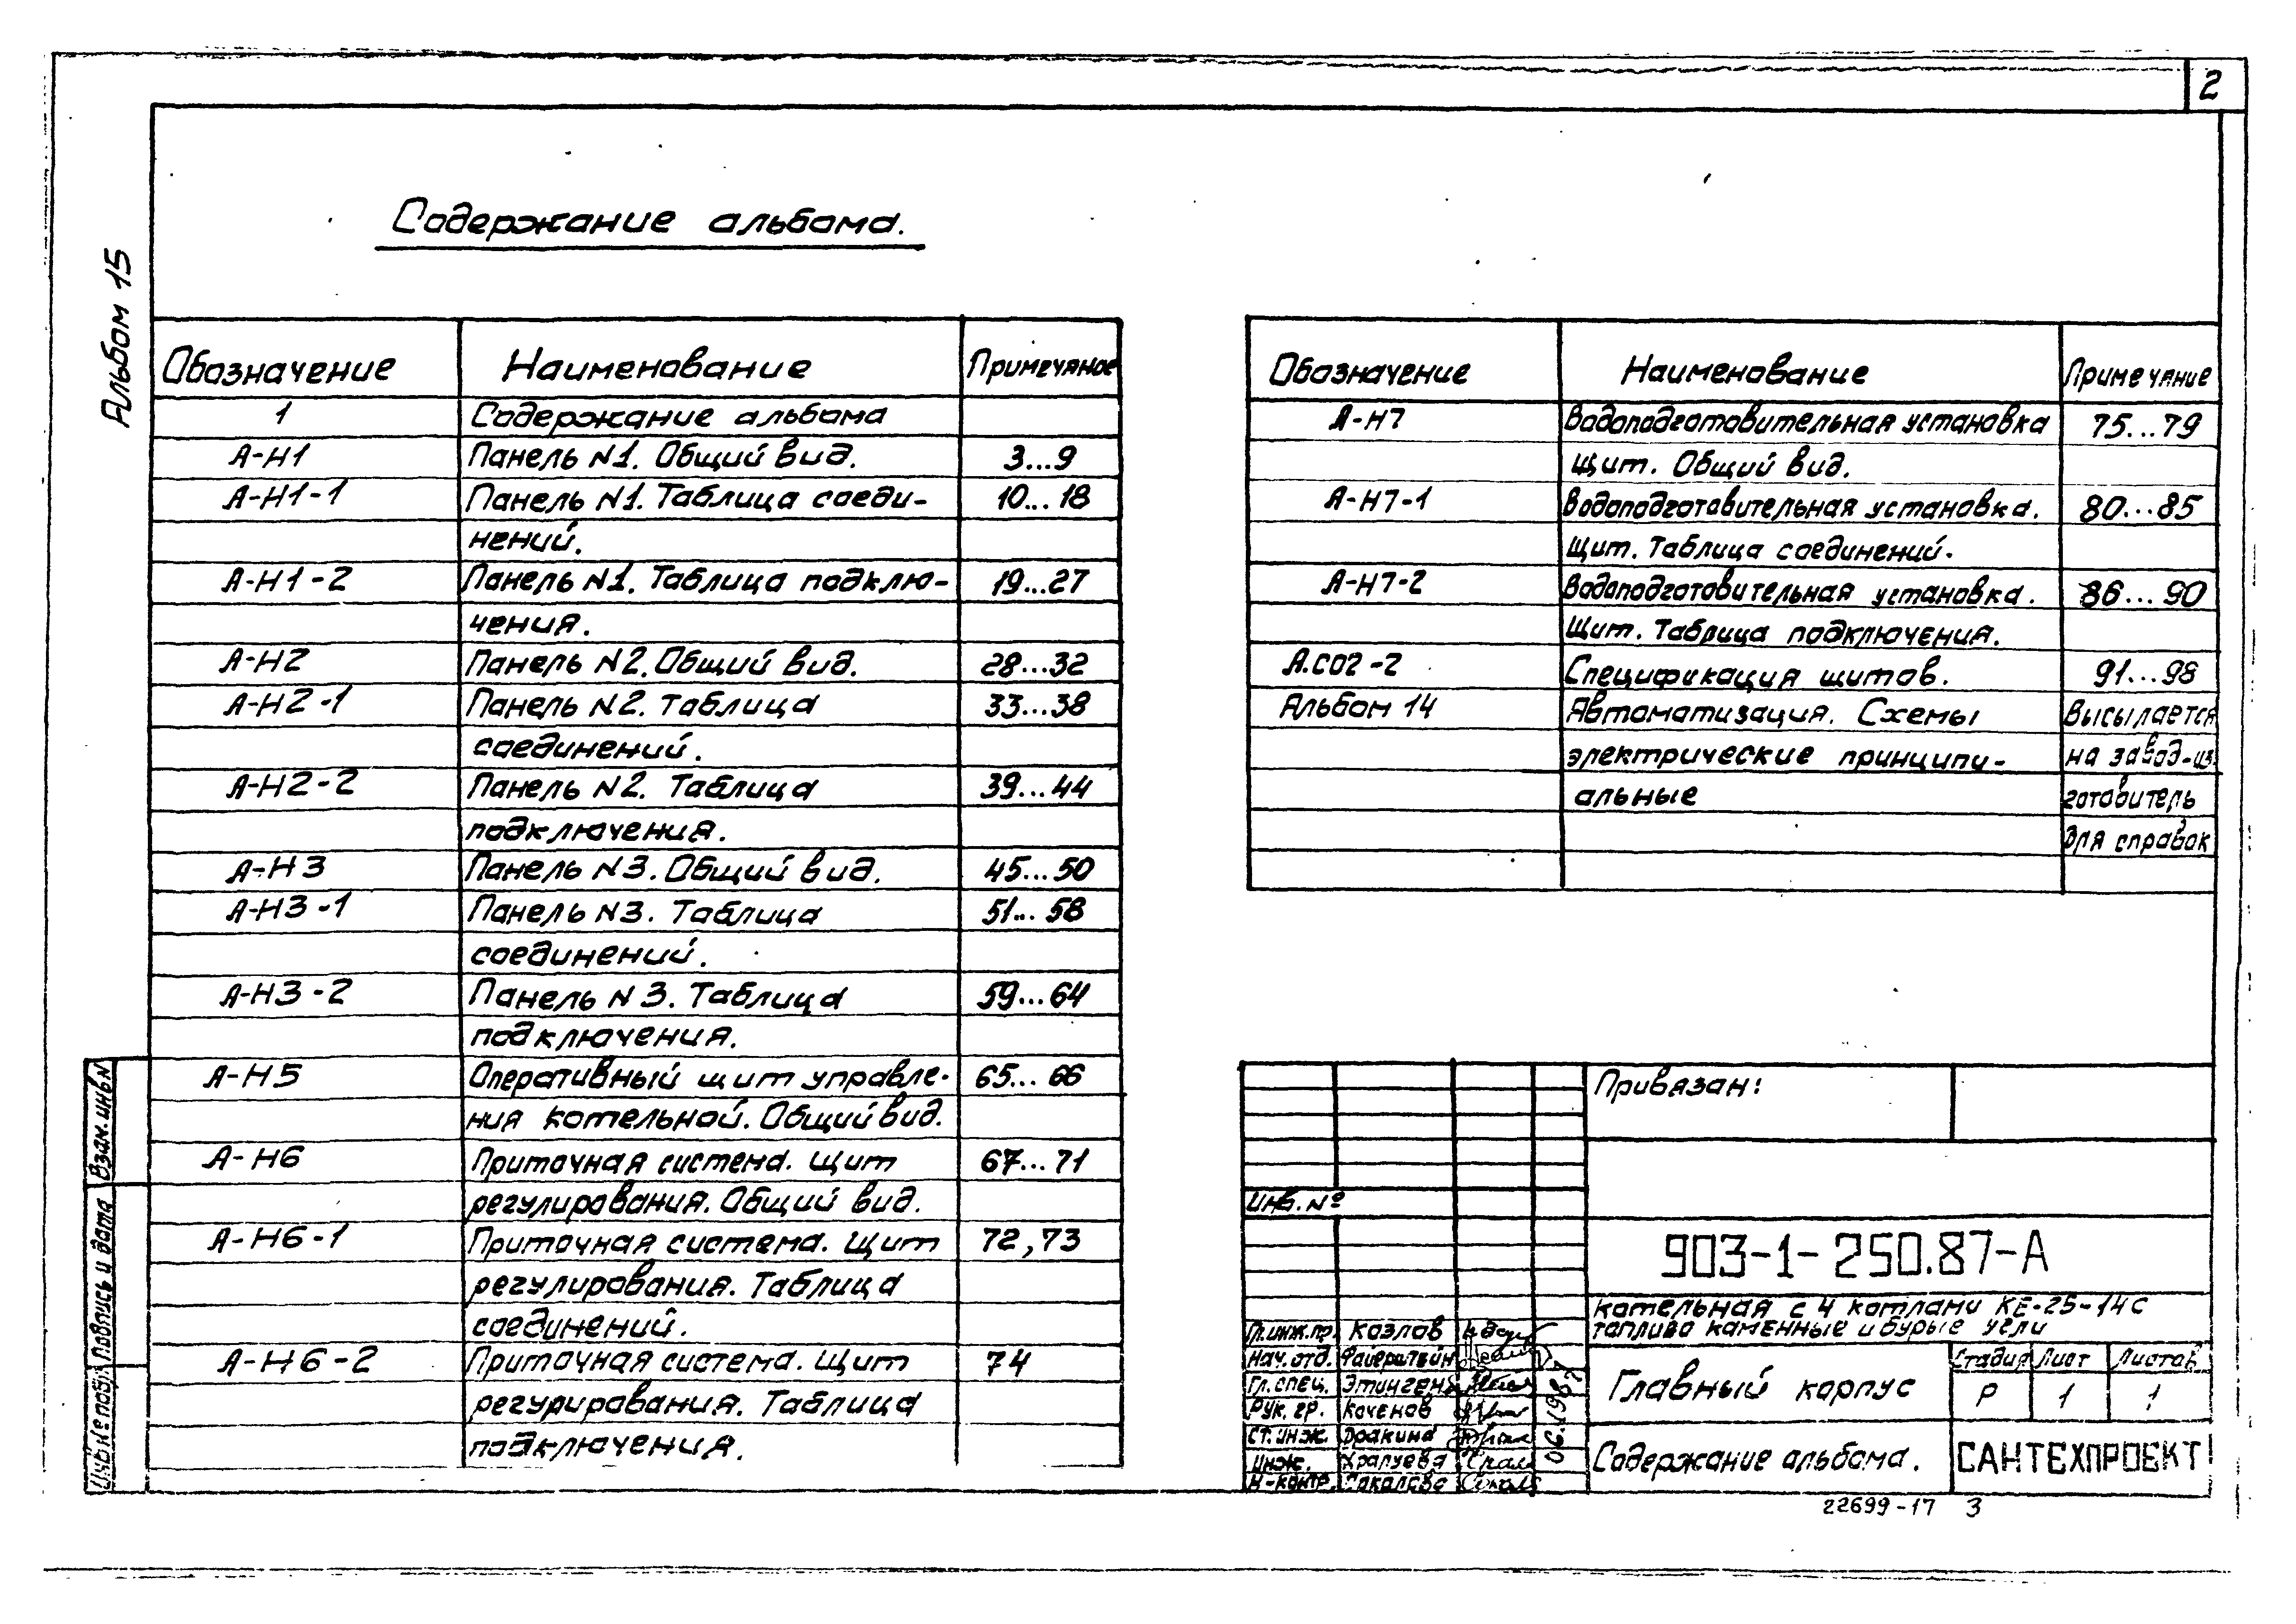 2
Альбом 15
Содержание альбома.
Обозначение Наименование Примечание
1 Содержание альбома
А-Н1 Панель N1. Общий вид. 3...9
А-Н1-1 Панель N1. Таблица соеди- 10...18
нений.
А-Н1-2 Панель N1. Таблица подклю- 19...27
чения.
А-Н2 Панель N2. Общий вид. 28...32
А-Н2-1 Панель N2. Таблица 33...38
соединений.
А-Н2-2 Панель N2. Таблица 39...44
подключения.
А-Н3 Панель N3. Общий вид. 45...50
А-Н3-1 Панель N3. Таблица 51...58
соединений.
А-Н3-2 Панель N3. Таблица 59...64
подключения.
А-Н5 Оперативный щит управле- 65...66
ния котельной. Общий вид.
А-Н6 Приточная система. Щит 67...71
регулирования. Общий вид.
А-Н6-1 Приточная система. Щит 72,73
регулирования. Таблица
соединений.
А-Н6-2 Приточная система. Щит 74
регулирования. Таблица
подключения.
Обозначение Наименование Примечание
А-Н7 Водоподготовительная установка 75...79
Щит. Общий вид.
А-Н7-1 Водоподготовительная установка. 80...85
Щит. Таблица соединений.
А-Н7-2 Водоподготовительная установка. 86...90
Щит. Таблица подключения.
А.СО2-2 Спецификация щитов. 91...98
Альбом 14 Автоматизация. Схемы Высылается
электрические принципи- на завод-из
альные готовитель
для справок
Взам. инв N
Подпись и дата
Инв № подл
Привязан:
Инв. №
903-1-250.87-А
Котельная с 4 котлами КЕ-25-14С
Топливо каменные и бурые угли
Гл.инж.пр. Козлов
Нач. отд. Файерштейн
Гл. спец.
Рук. гр. Коченов
Ст. инж. Дракина
Инж. Храпуева
Н-контр. Соколова
06.1987
Главный корпус
Стадия Лист Листов
Р 1 1
Содержание альбома.
САНТЕХПРОЕКТ
22699-17 3